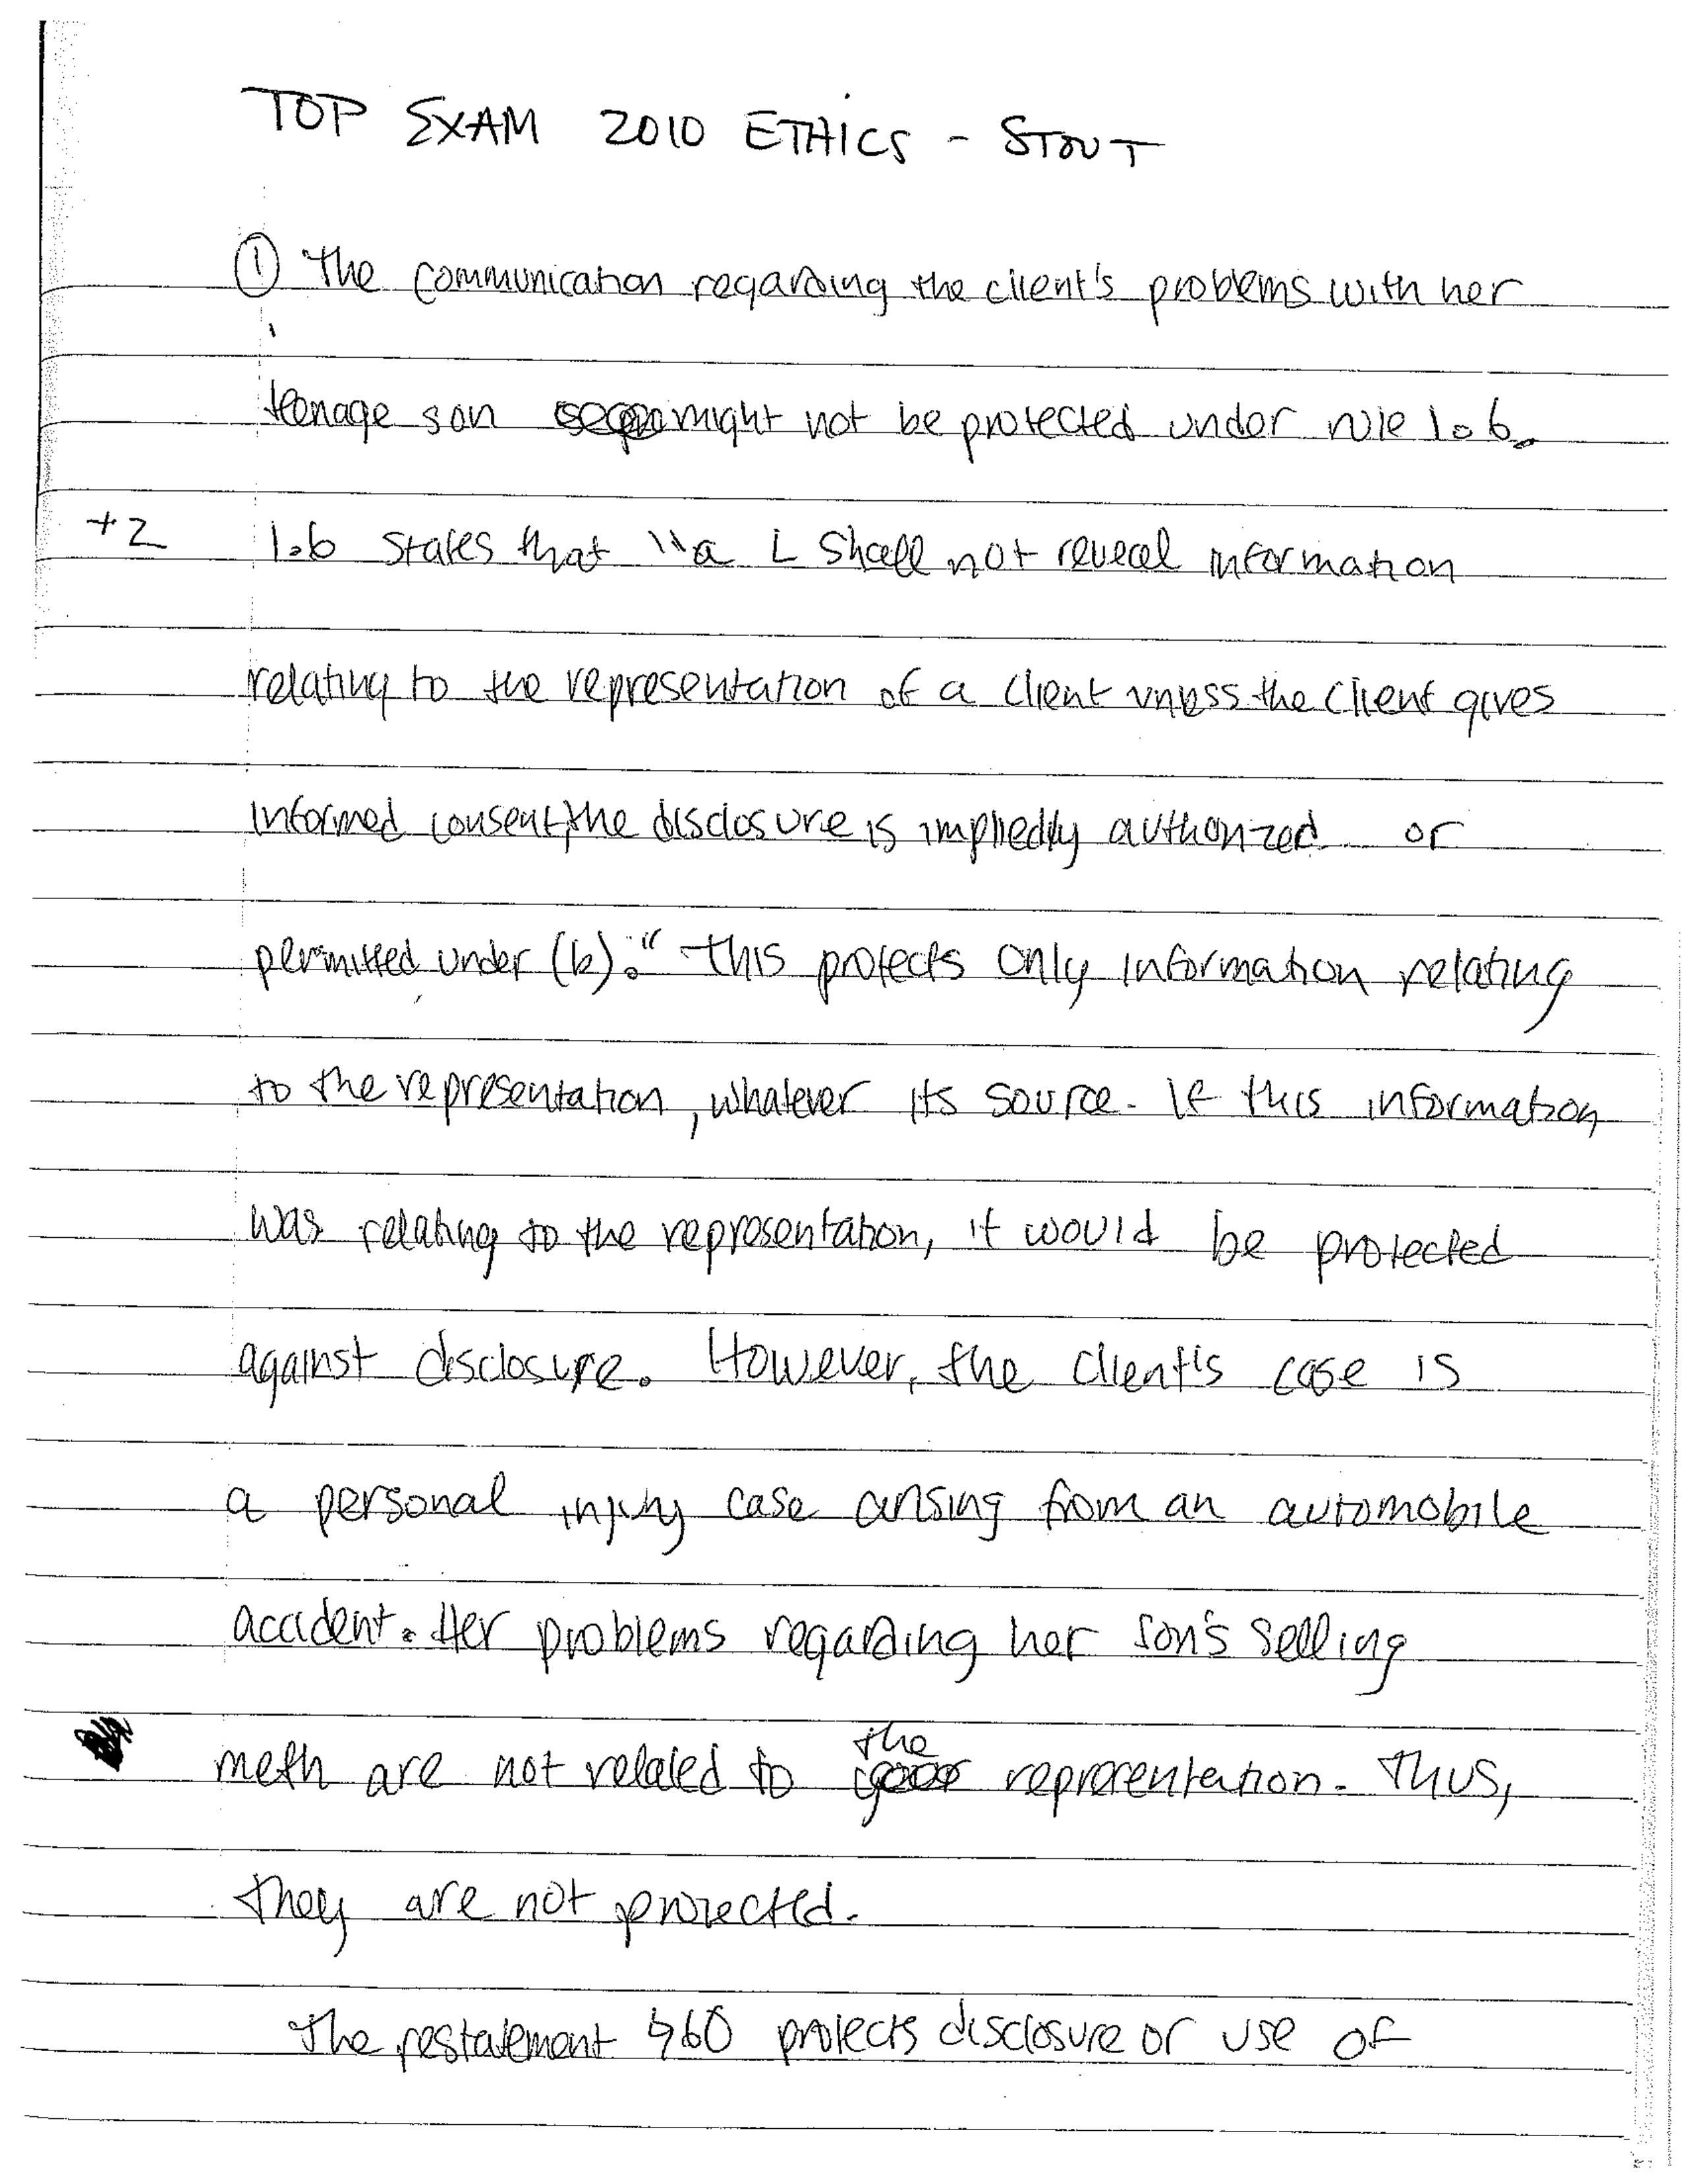 TOP EXAM 2010 ETHICS - STOUT
① The communication regarding the client's problems with her
teenage son might not be protected under rule 1.6.
+2 1.6 states that "a L shall not reveal information
relating to the representation of a client unless the client gives
informed consent, the disclosure is impliedly authorized or
permitted under (b)." This protects only information relating
to the representation, whatever its source. If this information
was relating to the representation, it would be protected
against disclosure. However, the client's case is
a personal injury case arising from an automobile
accident. Her problems regarding her son's selling
meth are not related to the representation. Thus,
they are not protected.
The restatement §60 protects disclosure or use of